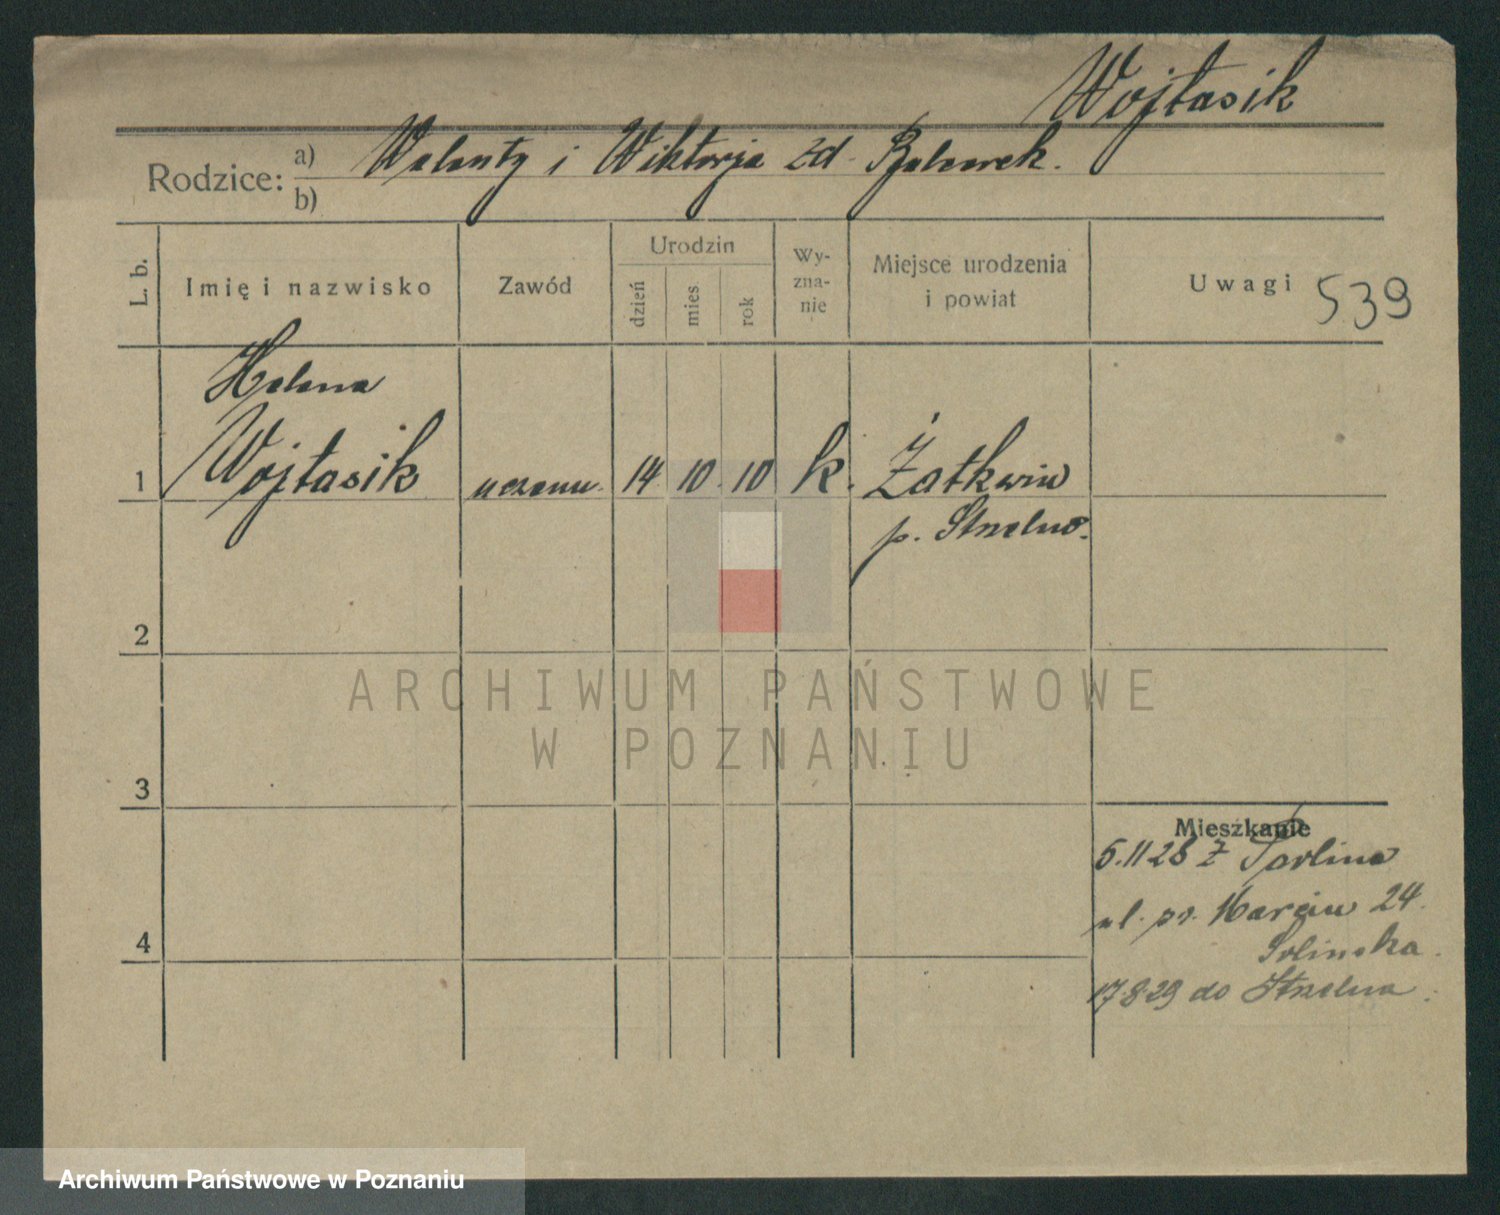 Wojtasik
Rodzice: a) Walenty i Wiktorja zd.
b)
L. b.
Imię i nazwisko
Zawód
Urodzin
dzień
mies.
rok
Wy-
zna-
nie
Miejsce urodzenia
i powiat
Uwagi
539
Helena
1 Wojtasik uczenn. 14 10 10 k.
p. Strzelno.
2
ARCHIWUM PAŃSTWOWE
W POZNANIU
3
Mieszkanie
5.11 28 z
ul. św. Marcin 24.
4
17.8.29 do Strzelna.
Archiwum Państwowe w Poznaniu